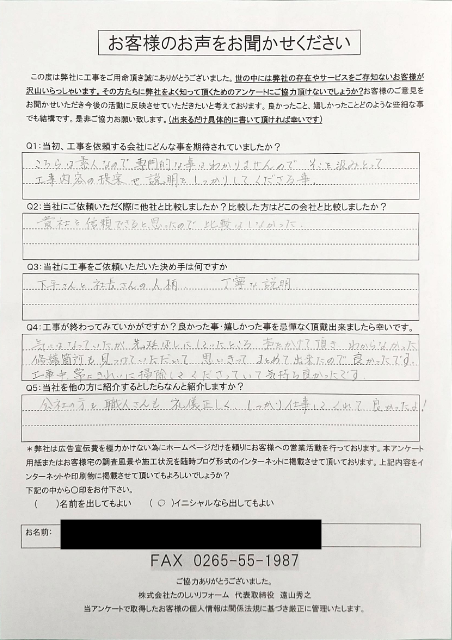 お客様のお声をお聞かせください
この度は弊社に工事をご用命頂き誠にありがとうございました。世の中には弊社の存在やサービスをご存知ないお客様が
沢山いらっしゃいます。その方たちに弊社をよく知って頂くためのアンケートにご協力頂けないでしょうか?お客様のご意見を
お聞かせいただき今後の活動に反映させていただきたいと考えております。良かったこと、嬉しかったことどのような些細な事
でも結構です。是非ご協力お願い致します。(出来るだけ具体的に書いて頂ければ幸いです)
Q1:当初、工事を依頼する会社にどんな事を期待されていましたか?
こちらは素人なので専門的な事はわかりませんので を汲みとって
工事内容の提案や説明をしっかりしてくださる事
Q2:当社にご依頼いただく際に他社と比較しましたか?比較した方はどこの会社と比較しましたか?
貴社を信頼できると思ったので比較はしなかった
Q3:当社に工事をご依頼いただいた決め手は何ですか
さんと社長さんの人柄、 丁寧な説明
Q4:工事が終わってみていかがですか?良かった事・嬉しかった事を忌憚なく頂戴出来ましたら幸いです。
気にはなっていたが先延ばしにしていたところ 声をかけて頂き わからなかった
修繕箇所も見つけていただいて 思いきって まとめて出来たので良かったです。
工事中 常にきれいに掃除してくださっていて気持ち良かったです
Q5:当社を他の方に紹介するとしたらなんと紹介しますか?
会社の方も職人さんも 礼儀正しく しっかり仕事してくれて良かったよ!
*弊社は広告宣伝費を極力かけない為にホームページだけを頼りにお客様への営業活動を行っております。本アンケート
用紙またはお客様宅の調査風景や施工状況を随時ブログ形式のインターネットに掲載させて頂いております。上記内容をイ
ンターネットや印刷物に掲載させて頂いてもよろしいでしょうか?
下記の中から〇印をお付下さい。
( )名前を出してもよい (○)イニシャルなら出してもよい
お名前:
FAX 0265-55-1987
ご協力ありがとうございました。
株式会社たのしいリフォーム 代表取締役 遠山秀之
当アンケートで取得したお客様の個人情報は関係法規に基づき厳正に管理いたします。